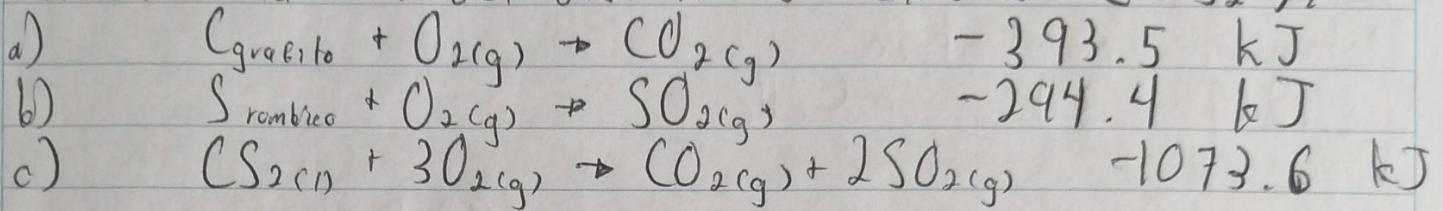 a) C grafito + O₂(g) → CO₂(g) -393.5 kJ
b) S rombico + O₂(g) → SO₂(g) -294.4 kJ
c) CS₂(l) + 3O₂(g) → CO₂(g) + 2SO₂(g) -1073.6 kJ